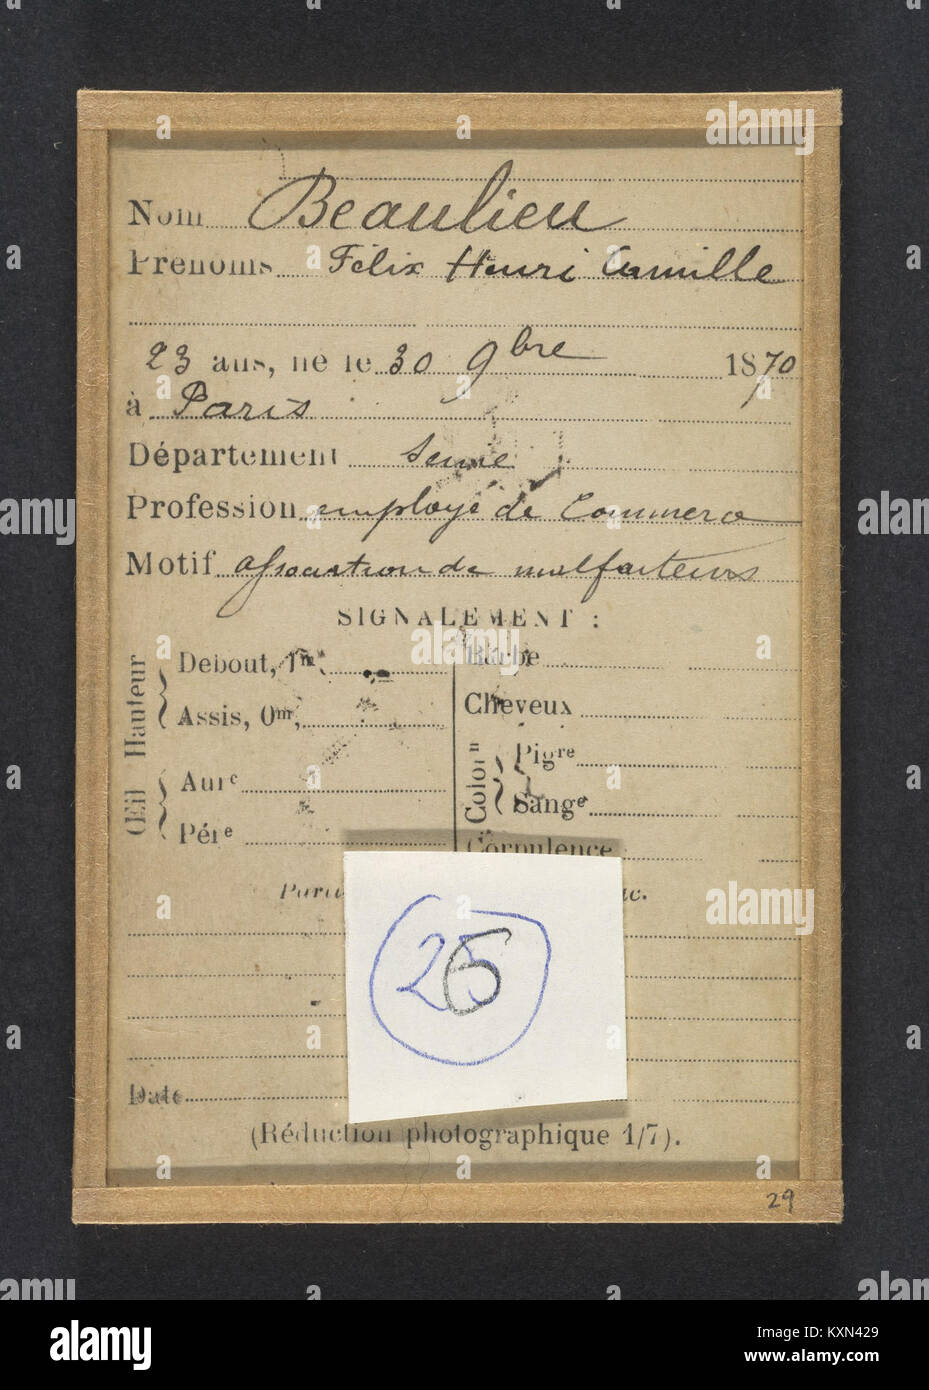 Nom Beaulieu
Prénoms Félix Henri Camille
23 ans, né le 30 9bre 1870
à Paris
Département Seine
Profession employé de Commerce
Motif association de malfaiteurs
SIGNALEMENT :
Hauteur
Debout, 1m,
Assis, 0m,
Œil
Aurc
Pére
Barbe
Cheveux
Colorn
Pigre
Sange
Corpulence
25
6
Date
(Réduction photographique 1/7).
29
alamy
alamy
KXN429
www.alamy.com